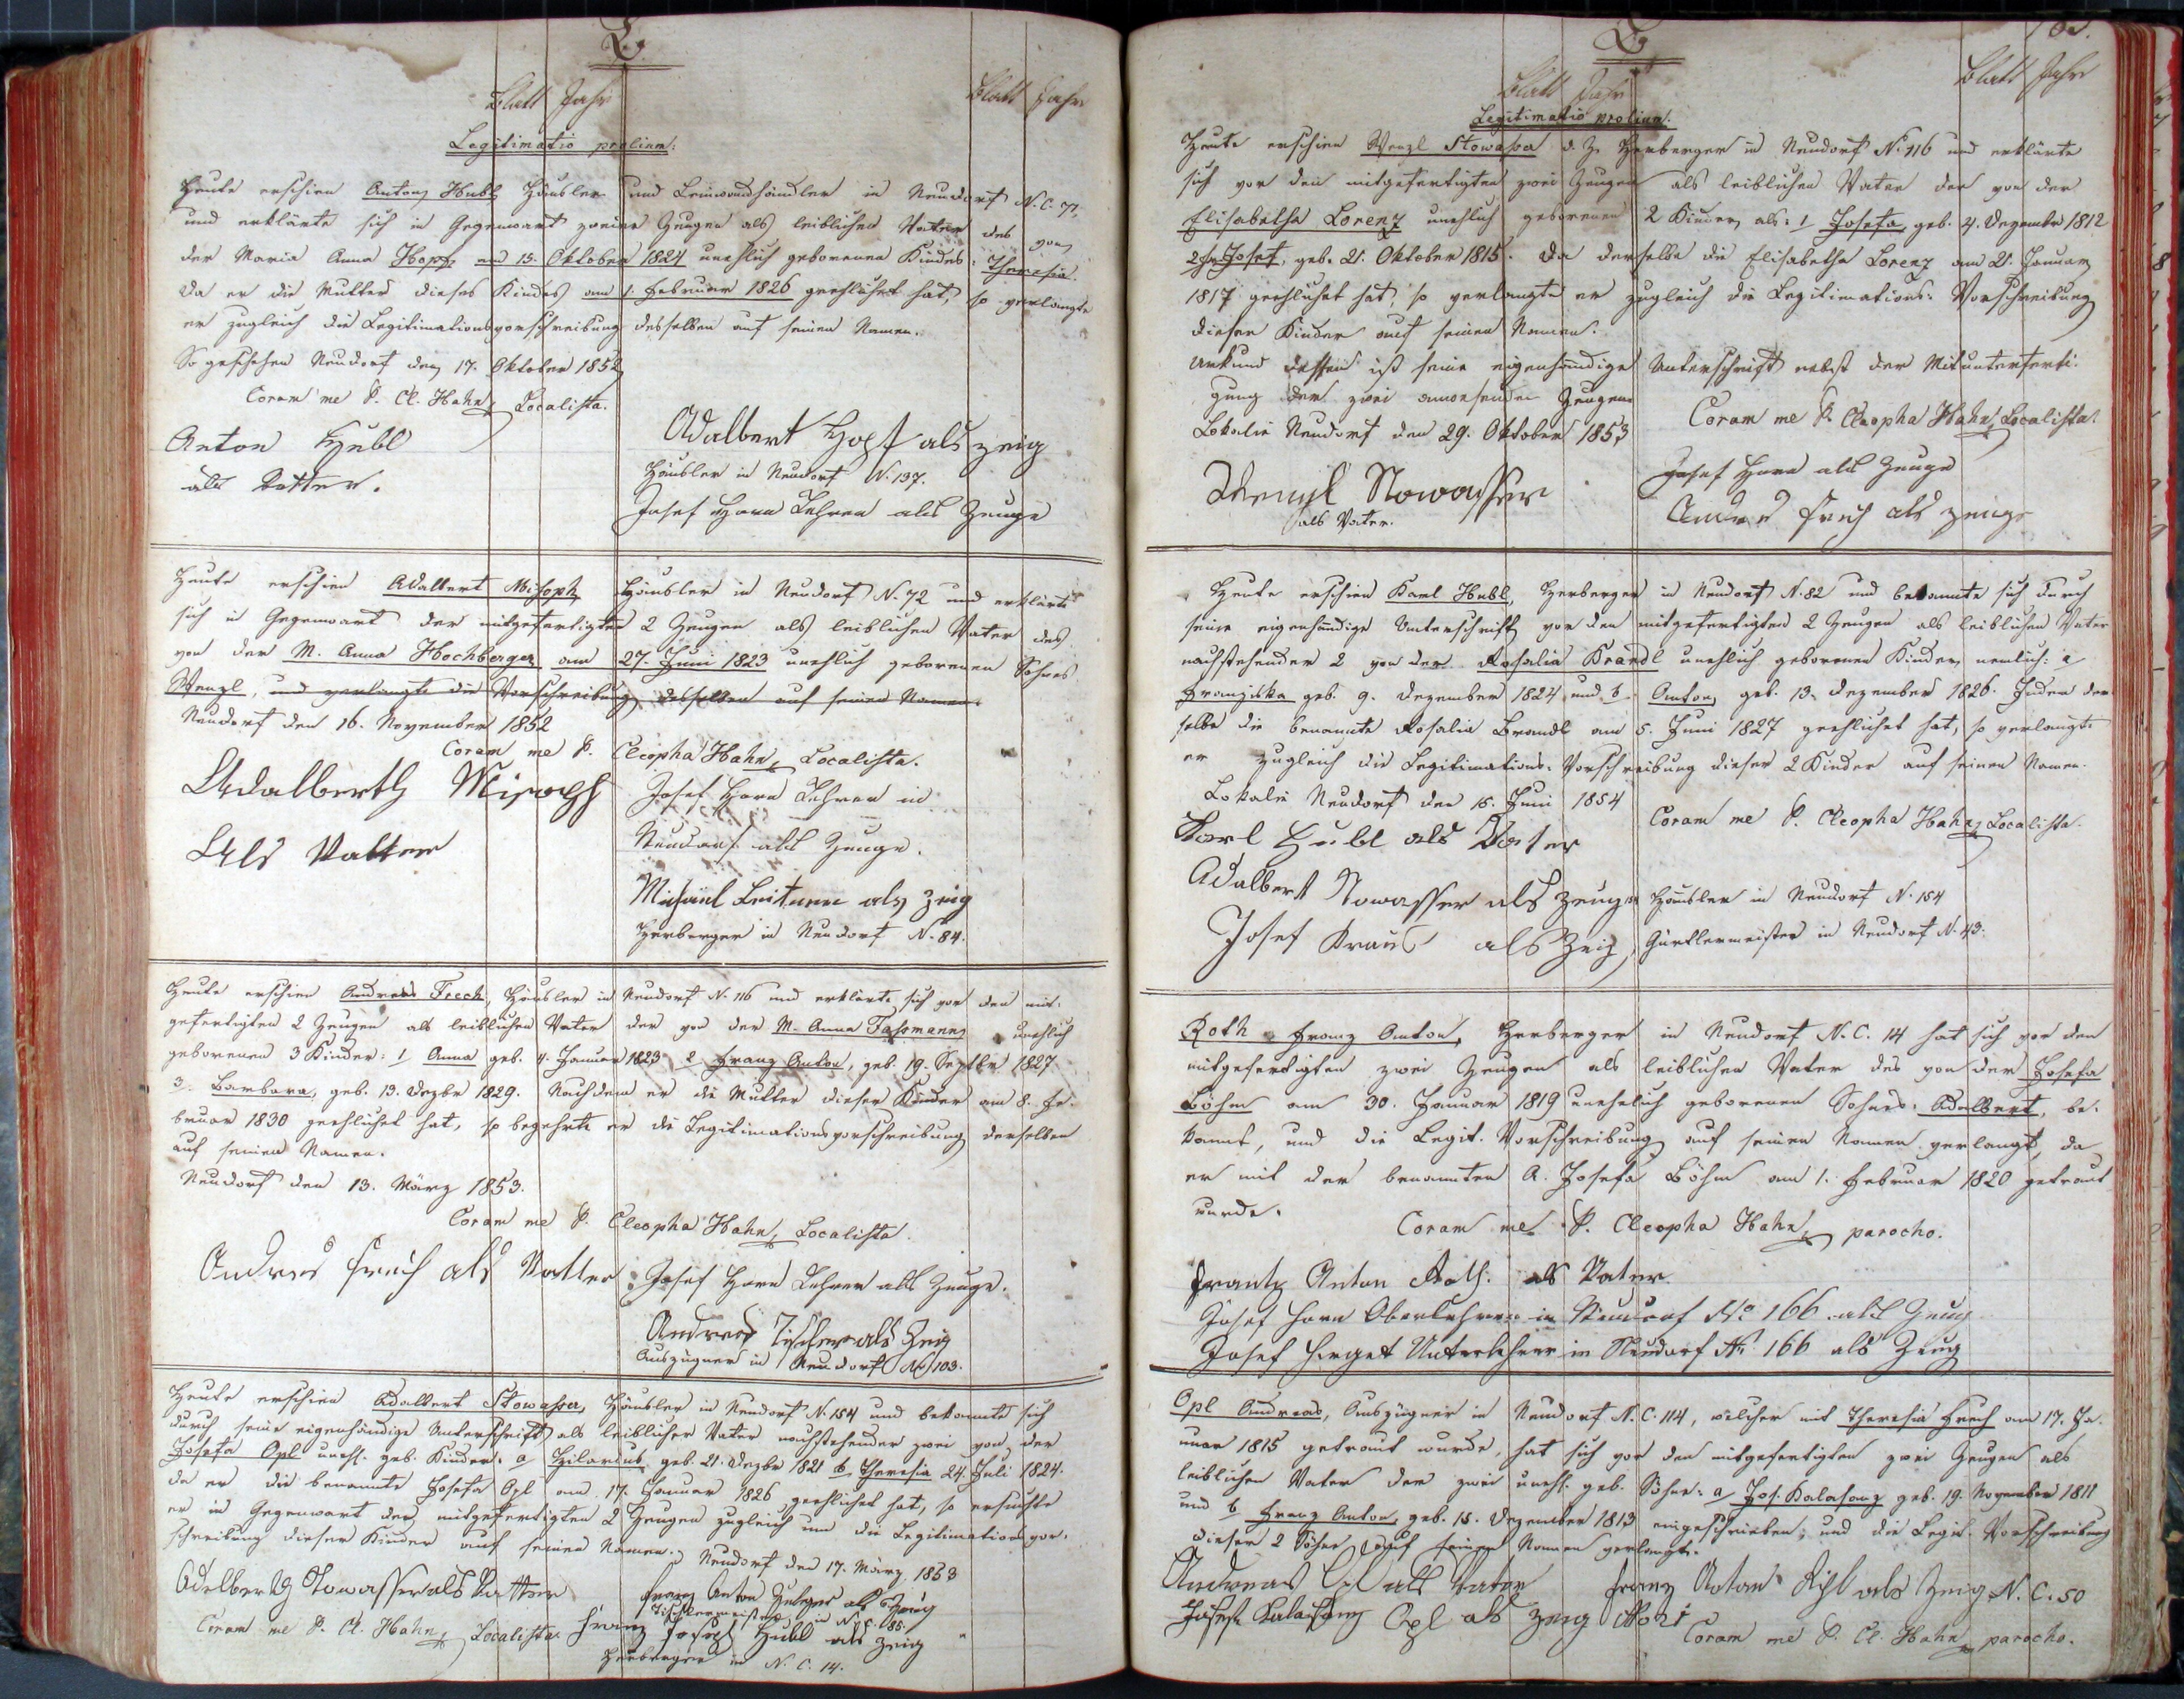 L.
Blatt Jahr
Blatt Jahr
Legitimatio prolium:
Heute erschien Anton Hubl Häusler und Leinwandhändler in Neudorf N.C. 71,
und erklärte sich in Gegenwart zweier Zeugen als leiblichen Vater des von
der Maria Anna Hopf am 15. Oktober 1824 unehlich geborenen Kindes: Theresia.
Da er die Mutter dieses Kindes am 1. Februar 1826 geehlichet hat, so verlangte
er zugleich die Legitimationsvorschreibung desselben auf seinen Namen.
So geschehen Neudorf den 17. Oktober 1852
Coram me P. Cl. Hahn, Localista.
Anton Hubl
als Vatter.
Adalbert Hopf als zeig
Häusler in Neudorf N. 137.
Josef Horn Lehrer als Zeuge
Heute erschien Adalbert Misoph Häusler in Neudorf N. 72 und erklärte
sich in Gegenwart der mitgefertigten 2 Zeugen als leiblichen Vater des
von der M. Anna Hochberger am 27. Juni 1823 unehlich geborenen Sohnes
Wenzl, und verlangte die Vorschreibung desselben auf seinen Namen.
Neudorf den 16. November 1852
Coram me P. Cleopha Hahn, Localista.
Adalberth Misoph
Als Vatter
Josef Horn Lehrer in
Neudorf als Zeuge.
Michael Leitner als Zeig
Herberger in Neudorf N. 84.
Heute erschien Andreas Frech, Häusler in Neudorf N. 116 und erklärte sich vor den mit-
gefertigten 2 Zeugen als leiblichen Vater der von der M. Anna Fassmann unehlich
geborenen 3 Kinder: 1 Anna geb. 4. Januar 1823 2. Franz Anton, geb. 19. Septbr 1827
3. Barbara, geb. 13. Dezbr 1829. Nachdem er die Mutter dieser Kinder am 8. Fe-
bruar 1830 geehlichet hat, so begehrte er die Legitimationsvorschreibung derselben
auf seinen Namen.
Neudorf den 13. März 1853.
Coram me P. Cleopha Hahn, Localista.
Andres Frech als Vatter
Josef Horn Lehrer als Zeuge.
Andres Tischer als Zeig
Auszügner in Neudorf N. 103.
Heute erschien Adalbert Stowasser, Häusler in Neudorf N. 154 und bekannte sich
durch seine eigenhändige Unterschrift als leiblicher Vater nachstehender zwei von der
Josefa Opl unehl. geb. Kinder: a Hilarius geb. 21. Dezbr 1821 b Theresia 24. Juli 1824.
da er die benannte Josefa Opl am 17. Januar 1826 geehlichet hat, so ersuchte
er in Gegenwart der mitgefertigten 2 Zeugen zugleich um die Legitimationsvor-
schreibung dieser Kinder auf seinen Namen. Neudorf den 17. März 1853
Adelberth Stowasser als Vatter
Franz Anton als Zeig
Tischlermeister in N.C. 85.
Coram me P. Cl. Hahn, Localista.
Franz Josef Hubl als zeig
Herberger in N.C. 14.
L.
Blatt Jahr
Blatt Jahr
Legitimatio prolium.
Heute erschien Wenzl Stowasser d. Z. Herberger in Neudorf N. 116 und erklärte
sich vor den mitgefertigten zwei Zeugen als leiblichen Vater der von der
Elisabetha Lorenz unehlich geborenen 2 Kinder als: 1 Josefa, geb. 4. Dezember 1812
2. Josef, geb. 21. Oktober 1815. Da derselbe die Elisabetha Lorenz am 21. Januar
1817 geehlichet hat, so verlangte er zugleich die Legitimations-Vorschreibung
dieser Kinder auf seinen Namen.
Urkund dessen ist seine eigenhändige Unterschrift nebst der Mitunterferti-
gung der zwei anwesenden Zeugen
Lokalie Neudorf den 29. Oktober 1853
Coram me P. Cleopha Hahn, Localista.
Wenzl Stowasser
als Vater.
Josef Horn als Zeuge
Andres Frech als zeuge
Heute erschien Karl Hubl, Herberger in Neudorf N. 82 und bekannte sich durch
seine eigenhändige Unterschrift vor den mitgefertigten 2 Zeugen als leiblichen Vater
nachstehender 2 von der Rosalia Brandl unehlich geborenen Kinder, nemlich: a
Franziska geb. 9. Dezember 1824 und b. Anton, geb. 13. Dezember 1826. Indem der-
selbe die benannte Rosalia Brandl am 5. Juni 1827 geehlichet hat, so verlangte
er zugleich die Legitimations-Vorschreibung dieser 2 Kinder auf seinen Namen.
Lokalie Neudorf den 15. Juni 1854
Coram me P. Cleopha Hahn, Localista.
Karl Hubl als Vater
Adalbert Stowasser als Zeuge Häusler in Neudorf N. 154
Josef Kraus als Zeig, Gürtlermeister in Neudorf N. 43.
Roth Franz Anton, Herberger in Neudorf N.C. 14 hat sich vor den
mitgefertigten zwei Zeugen als leiblichen Vater des von der Josefa
Böhm am 30. Januar 1819 unehelich geborenen Sohnes: Adalbert, be-
kannt, und die Legit. Vorschreibung auf seinen Namen verlangt, da
er mit der benannten A. Josefa Böhm am 1. Februar 1820 getraut
wurde.
Coram me P. Cleopha Hahn, parocho.
Frantz Anton Roth. als Vater
Josef Horn Oberlehrer in Neudorf No 166 als Zeug
Josef Herget Unterlehrer in Neudorf No 166 als Zeug
Opl Andreas, Auszügner in Neudorf N.C. 114, welcher mit Theresia Frech am 17. Ja-
nuar 1815 getraut wurde, hat sich vor den mitgefertigten zwei Zeugen als
leiblichen Vater der zwei unehl. geb. Söhne: a, Jos. Kalasanz geb. 19. November 1811
und b Franz Anton, geb. 15. Dezember 1813 eingeschrieben; und die Legit. Vorschreibung
dieser 2 Söhne auf seinen Namen verlangt.
Andreas Opl als Vater
Franz Anton als Zeig N.C. 50
Josef Kalasanz Opl als zeig
Coram me P. Cl. Hahn, parocho.